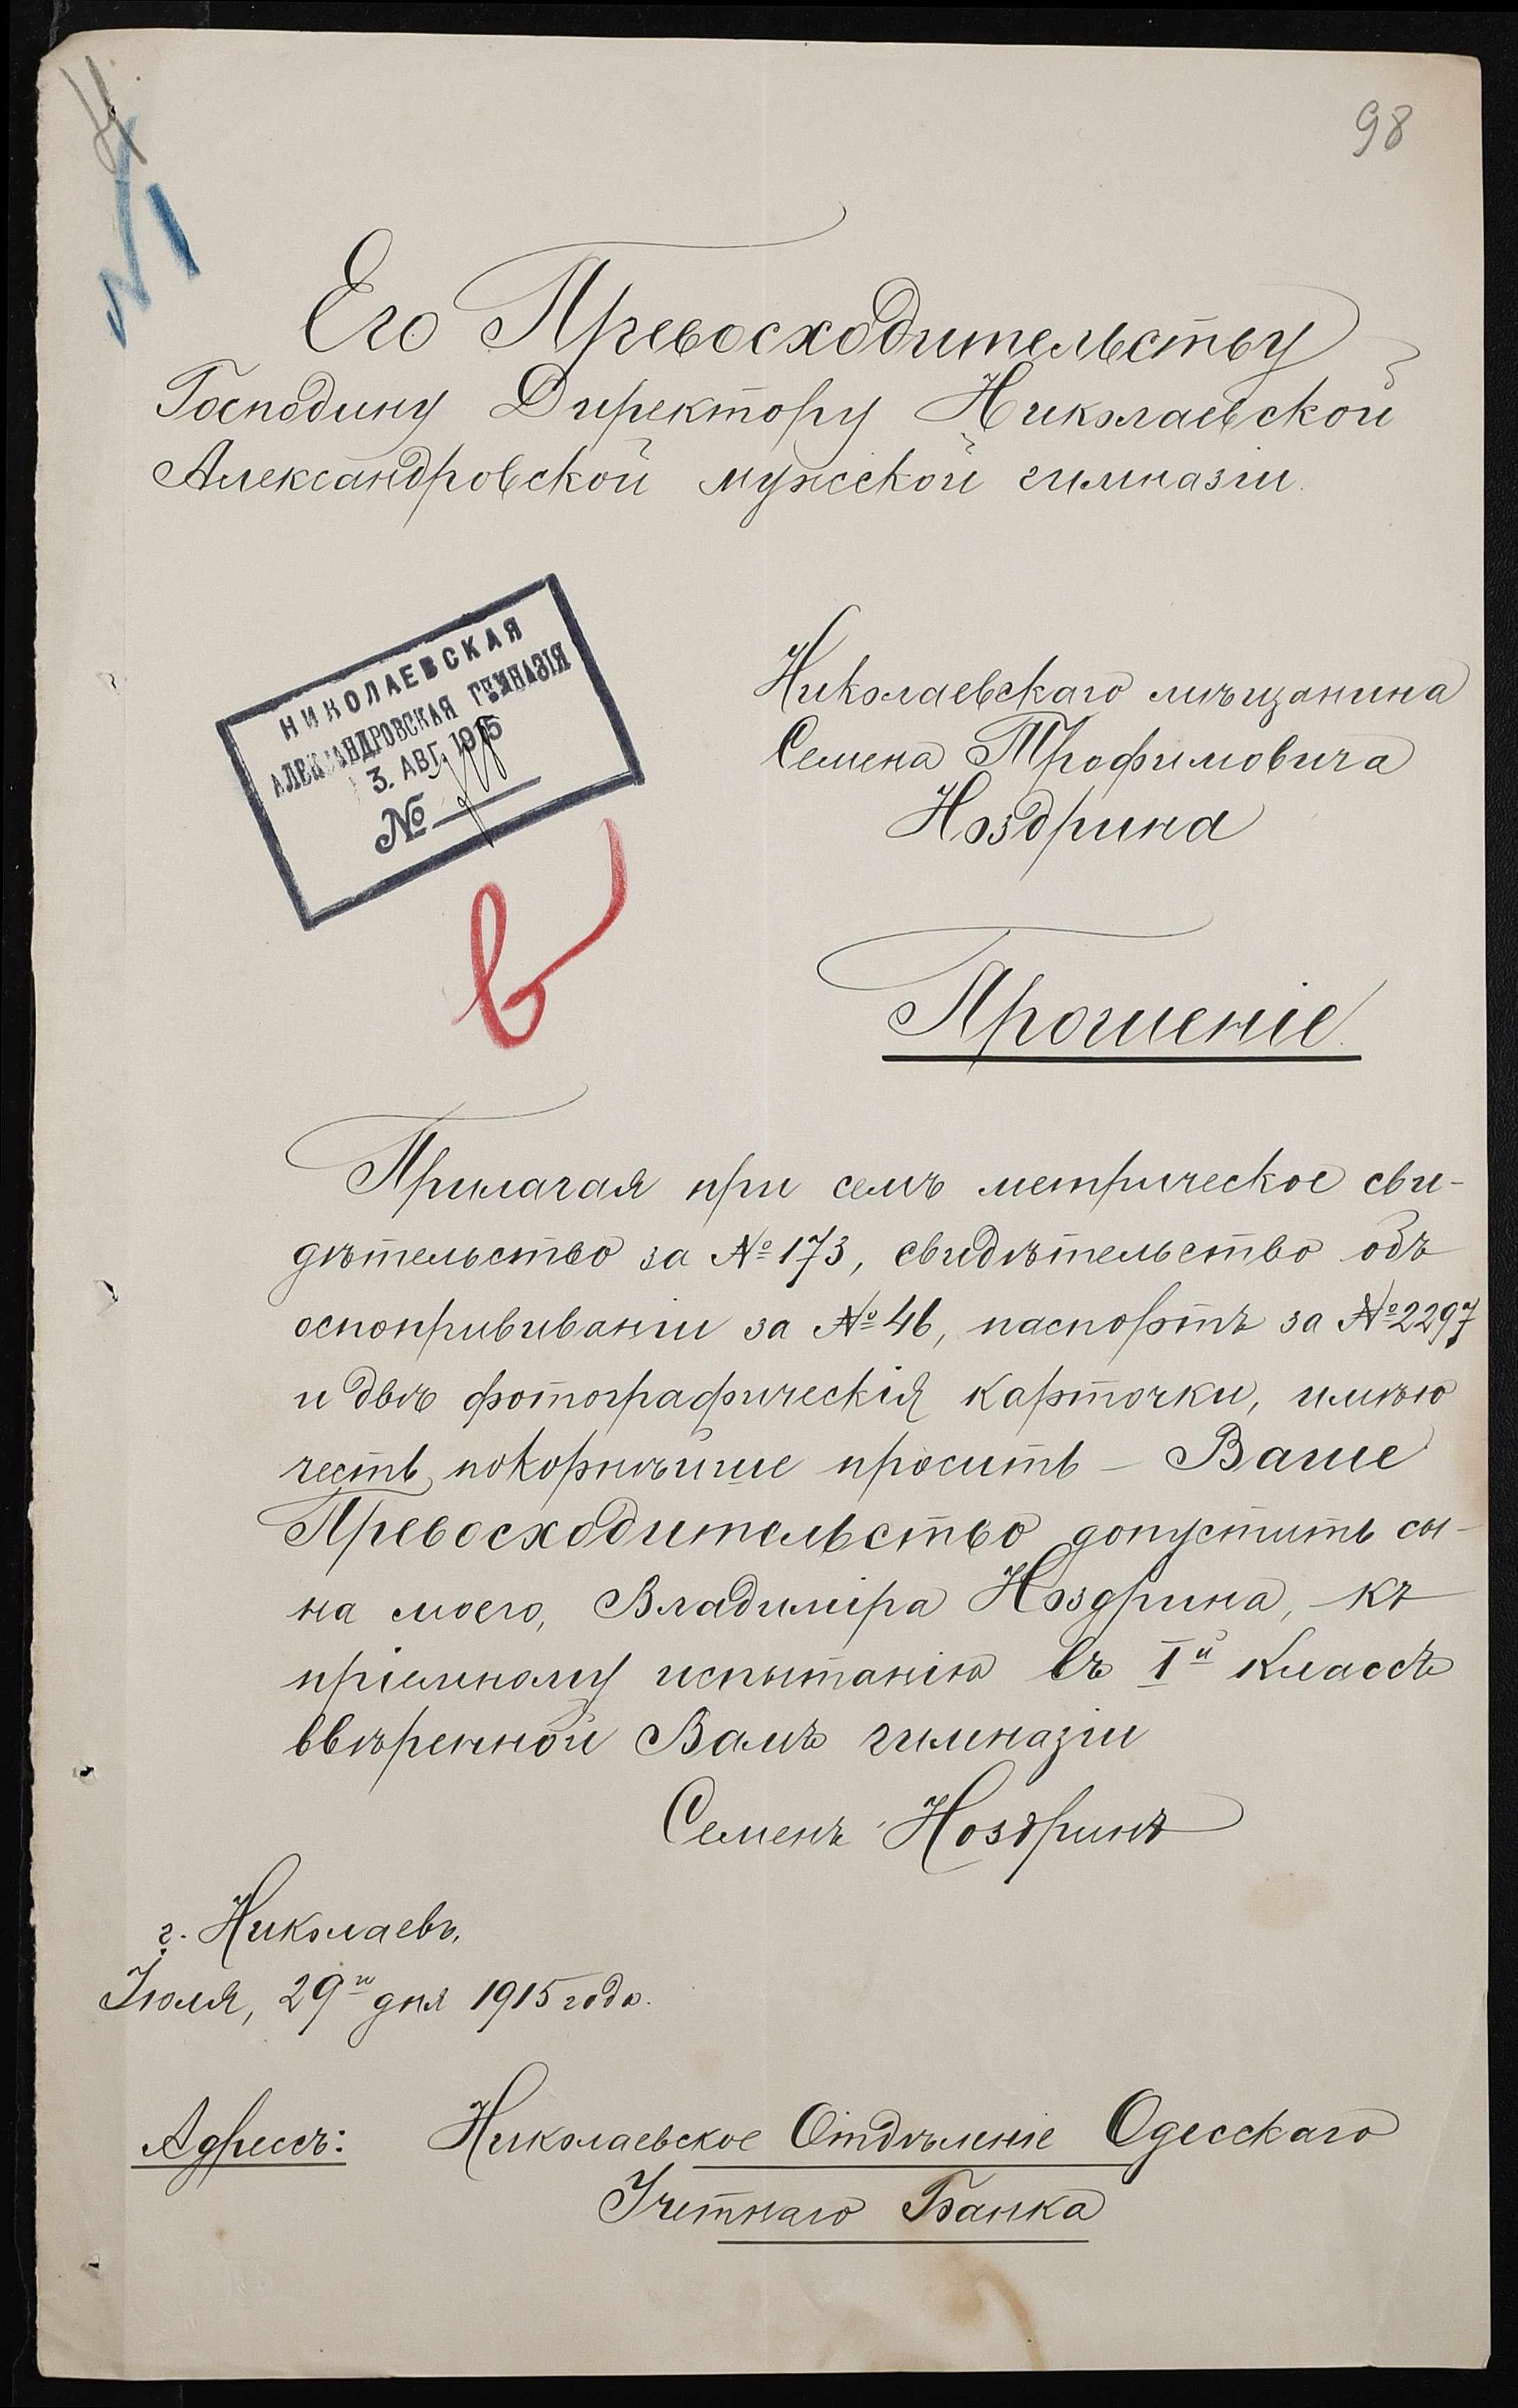 98
№ 1
Его Превосходительству
Господину Директору Николаевской
Александровской мужской гимназіи.
НИКОЛАЕВСКАЯ
АЛЕКСАНДРОВСКАЯ ГИМНАЗІЯ
3. АВГ. 1915
№
Николаевскаго мѣщанина
Семена Трофимовича
Ноздрина
Прошеніе.
Прилагая при семъ метрическое сви-
дѣтельство за № 173, свидѣтельство объ
оспопрививаніи за № 46, паспортъ за № 2297
и двѣ фотографическія карточки, имѣю
честь покорнѣйше просить – Ваше
Превосходительство допустить сы-
на моего, Владиміра Ноздрина, къ
пріемному испытанію въ Iй классъ
ввѣренной Вамъ гимназіи
Семенъ Ноздринъ
г. Николаевъ.
Іюля, 29го дня 1915 года.
Адресъ: Николаевское Отдѣленіе Одесскаго
Учетнаго Банка